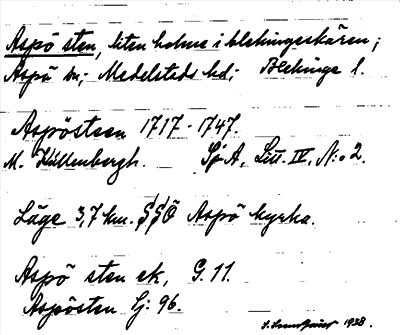 Aspö sten, liten holme i blekingeskären;
Aspö sn; Medelstads hd; Blekinge l.
Aspösteen 1717-1747.
M. Källenbergh. Sjö A, Litt. IV, N:o 2.
Läge 3,7 km. SSÖ Aspö kyrka.
Aspö sten ek, G. 11.
Aspösten Sj: 96.
1938.